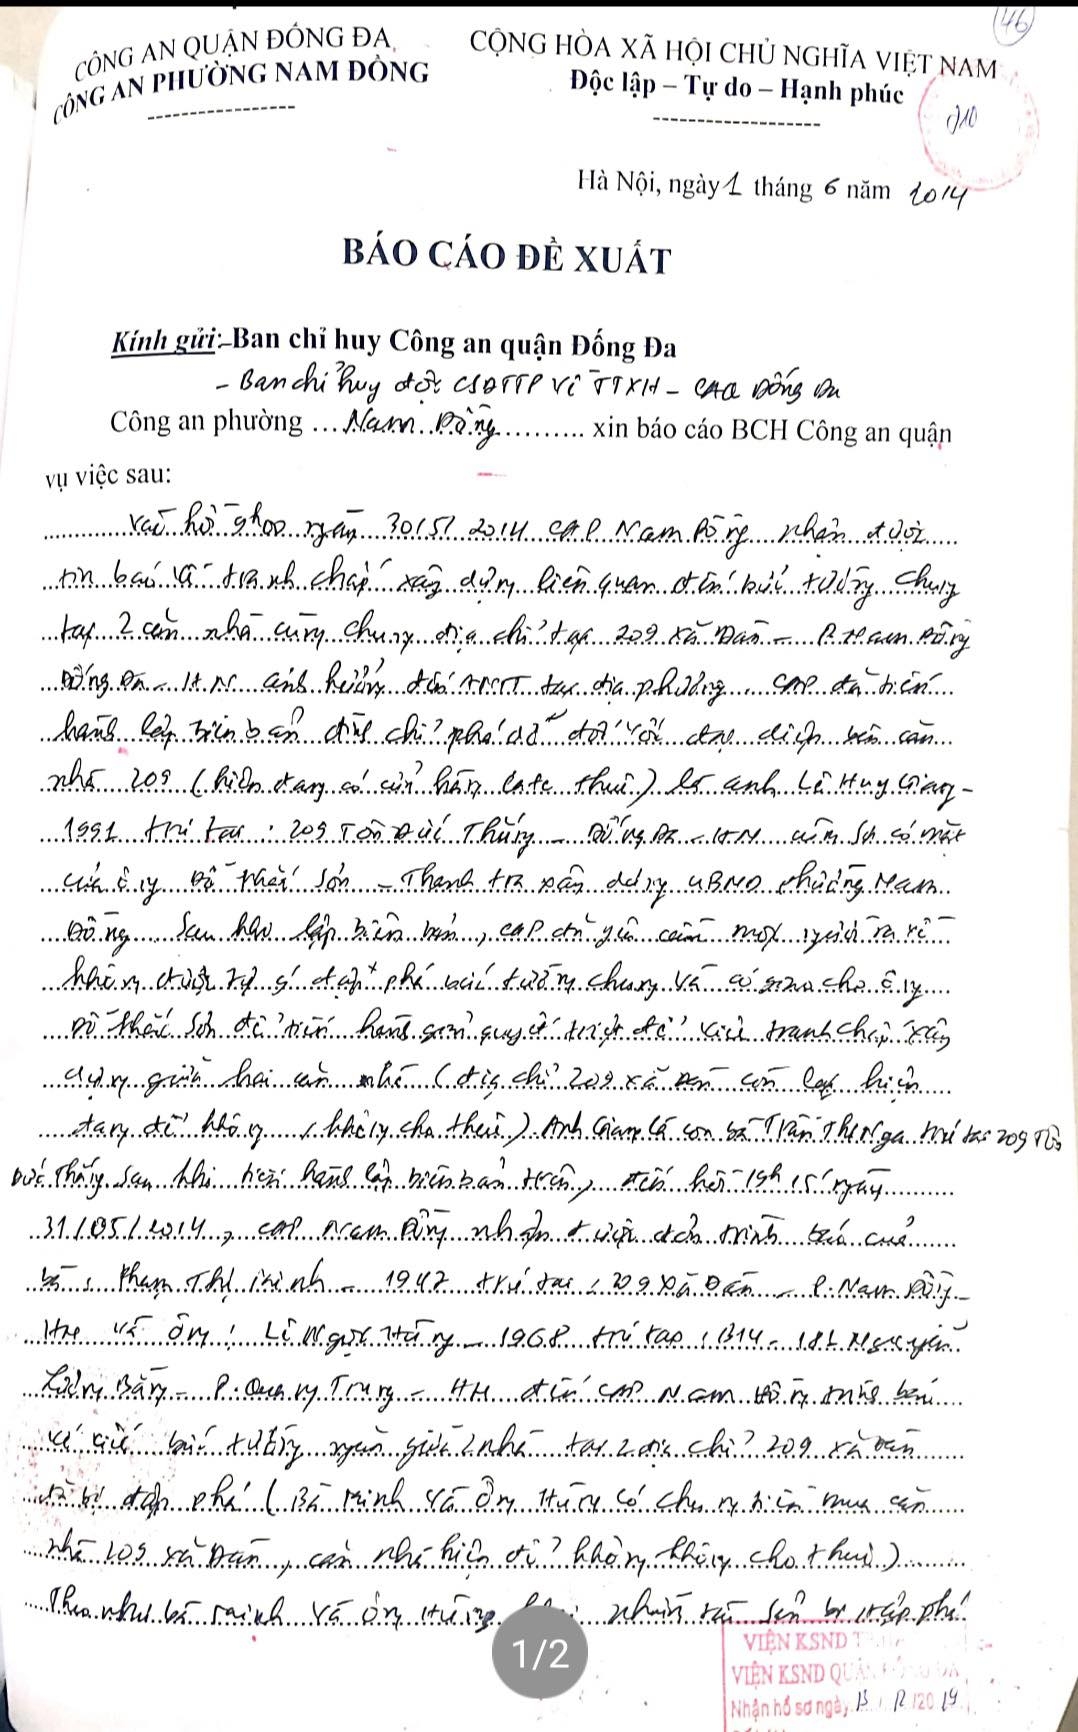 46
CÔNG AN QUẬN ĐỐNG ĐA
CÔNG AN PHƯỜNG NAM ĐỒNG
CỘNG HÒA XÃ HỘI CHỦ NGHĨA VIỆT NAM
Độc lập – Tự do – Hạnh phúc
210
Hà Nội, ngày 1 tháng 6 năm 2014
BÁO CÁO ĐỀ XUẤT
Kính gửi: Ban chỉ huy Công an quận Đống Đa
- Ban chỉ huy đội CSĐTTP về TTXH - CAQ Đống Đa
Công an phường ... Nam Đồng ........ xin báo cáo BCH Công an quận
vụ việc sau:
Vào hồi 9h00 ngày 30/5/2014 CAP Nam Đồng nhận được
tin báo về tranh chấp xây dựng liên quan đến bức tường chung
tại 2 căn nhà cùng chung địa chỉ tại 209 Xã Đàn - P. Nam Đồng
Đống Đa - HN ảnh hưởng đến ANTT tại địa phương. CAP đã tiến
hành lập biên bản đình chỉ phá dỡ đối với đại diện bên căn
nhà 209 (hiện đang có cửa hàng cafe thuê) là anh Lê Huy Giang -
1991 trú tại: 209 Tôn Đức Thắng - Đống Đa - HN cùng sự có mặt
của ông Đỗ Thái Sơn - Thanh tra xây dựng UBND phường Nam
Đồng. Sau khi lập biên bản, CAP đã yêu cầu mọi người ra về
không được tự ý đập phá bức tường chung và có giao cho ông
Đỗ Thái Sơn để tiến hành giải quyết triệt để việc tranh chấp xây
dựng giữa hai căn nhà (địa chỉ 209 Xã Đàn còn lại hiện
đang để không, không cho thuê). Anh Giang là con bà Trần Thị Nga trú tại 209 Tôn
Đức Thắng. Sau khi tiến hành lập biên bản trên, đến hồi 19h15' ngày
31/05/2014, CAP Nam Đồng nhận được đơn trình báo của
bà: Phạm Thị Minh - 1947 trú tại: 209 Xã Đàn - P. Nam Đồng -
HN và ông: Lê Ngọc Hùng - 1968 trú tại: B14 - 181 Nguyễn
Lương Bằng - P. Quang Trung - HN đến CAP Nam Đồng trình báo
về việc bức tường ngăn giữa 2 nhà tại 2 địa chỉ 209 Xã Đàn
đã bị đập phá (Bà Minh và ông Hùng có chung tiền mua căn
nhà 209 Xã Đàn, căn nhà hiện để không không cho thuê).
Theo như bà Minh và ông Hùng khai nhận tài sản bị đập phá
1/2
VIỆN KSND
VIỆN KSND QUẬN ĐỐNG ĐA
Nhận hồ sơ ngày 13 / 12 / 20 19